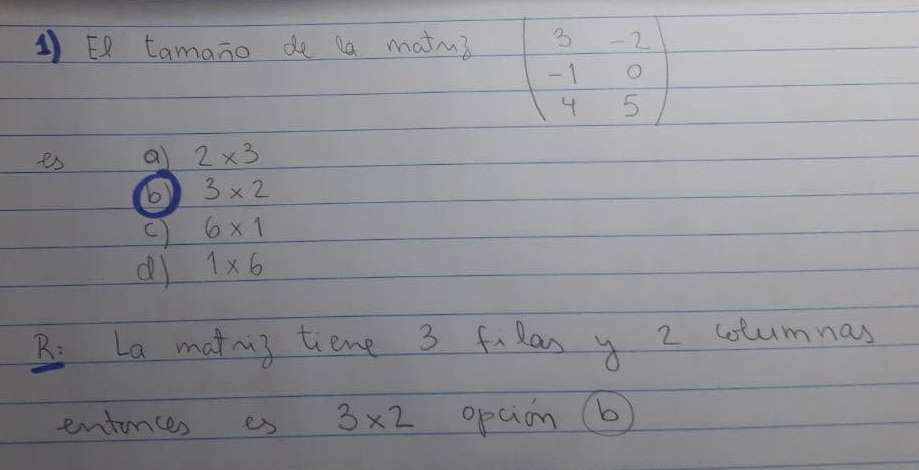 1) El tamaño de la matriz ( 3 -2
-1 0
4 5 )
es a) 2 x 3
b) 3 x 2
c) 6 x 1
d) 1 x 6
R: La matriz tiene 3 filas y 2 columnas
entonces es 3x2 opción b